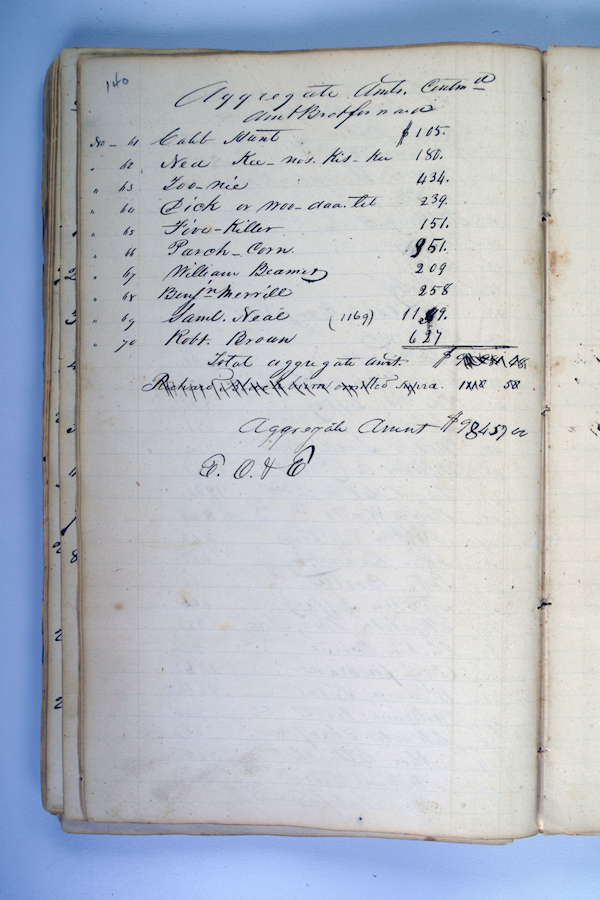 140
Aggregate Amts. Contind
Amt Brot forward
No - 61 Caleb Hunt $105.
" 62 Ned Kee-nos-kis-kee 180.
" 63 Zoo-nie 434.
" 64 Dick or woo-daa-tet 239.
" 65 Five-Killer 151.
" 66 Parch-Corn 951.
" 67 William Beamer 209
" 68 Benjn Merrill 258
" 69 Saml. Neal (1169) 1199.
" 70 Robt. Brown 627
Total aggregate amt. $
Richard omitted supra. 58.
Aggregate Amunt $98457
E. O. & E